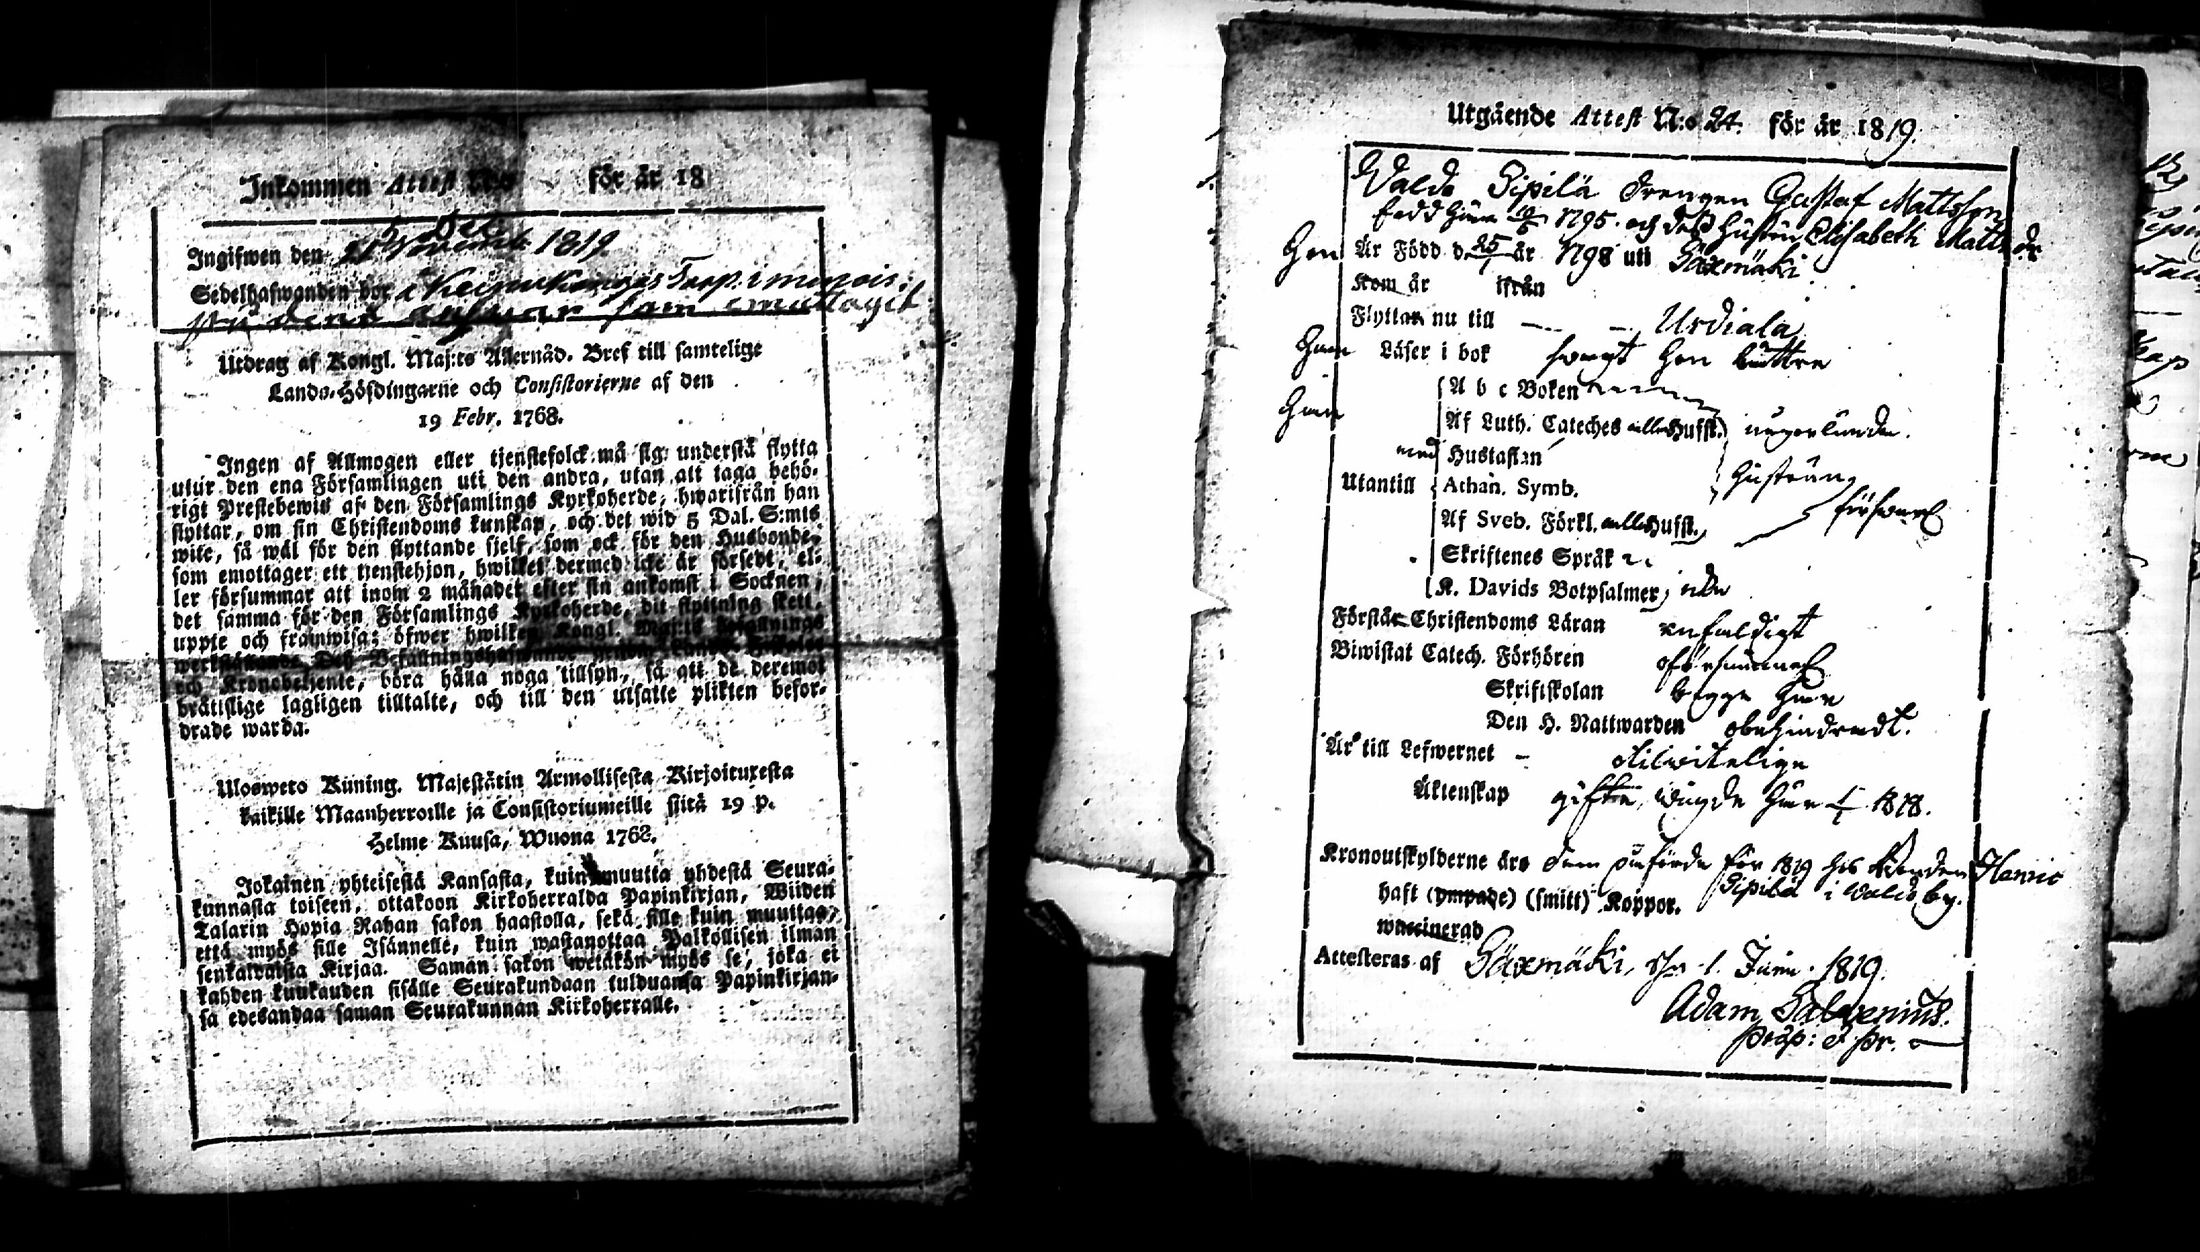 Inkommen Attest N:o för år 18
Ingifwen den 1819
Sedelhafwanden bor i Keisukanges Torp. i
som emottagit
Utdrag af Kongl. Maj:ts Allernåd. Bref till samtelige
Lands-Höfdingarne och Consistorierne af den
19 Febr. 1768.
Ingen af Allmogen eller tjenstefolck må sig understå flytta
utur den ena Församlingen uti den andra, utan att taga behö-
rigt Prestebewis af den Församlings Kyrkoherde, hwarifrån han
flyttar, om sin Christendoms kunskap, och det wid 5 Dal. S:mts
wite, så wäl för den flyttande sjelf, som ock för den Husbonde,
som emottager ett tjenstehjon, hwilket dermed icke är försedt, el-
ler försummar att inom 2 månader efter sin ankomst i Socknen,
det samma för den Församlings Kyrkoherde, dit flyttning skett,
uppte och framwisa; öfwer hwilken Kongl. Maj:ts
och Kronobetjente, böra hålla noga tillsyn, så att de deremot
brättslige lagligen tilltalte, och till den utsatte plikten befor-
drade warda.
Ulosweto Kuning. Majestätin Armollisesta Kirjoituxesta
kaikille Maanherroille ja Consistoriumeille siitä 19 p.
Helme Kuusa, Wuona 1768.
Jokainen yhteisestä Kansasta, kuin muutta yhdestä Seura-
kunnasta toiseen, ottakoon Kirkoherralda Papinkirjan, Wiiden
Talarin Hopia Rahan sakon haastolla, sekä sille kuin muuttaa,
että myös sille Isännelle, kuin wastanottaa Palkollisen ilman
senkaldaista Kirjaa. Saman sakon wetäkön myös se, joka ei
kahden kuukauden sisälle Seurakundaan tulduansa Papinkirjan-
sa edesandaa saman Seurakunnan Kirkoherralle.
Utgående Attest N:o 24. för år 1819.
Waldo Sipilä Drengen Gustaf Mattsson
född 1795. och dess Hustru Elisabeth Matts dr
Hon Är Född d. 25 år 1798 uti Säxmäki
Kom år ifrån
Flyttar nu till Urdiala
Läser i bok swagt Hon bättre
A b c Boken
Af Luth. Cateches Hufst. någorlunda.
med Hustaflan
Utantill Athan. Symb. Hustrun
Af Sveb. Förkl. Hufst. förswarl
Skriftenes Språk
K. Davids Botpsalmer
Förstår Christendoms Läran enfaldigt
Biwistat Catech. Förhören oförsummel
Skriftskolan begge här
Den H. Nattwarden obehindradt.
Är till Lefwernet otilwitelige
Äktenskap gifte, wigde här 1818.
Kronoutskylderne äro dem påförde för 1819 hos Bonden Henric
Sipilä i Waldo by.
haft (ympade) (smitt) Koppor.
waccinerad
Attesteras af Säxmäki, d. 1. Juni. 1819.
Adam Salvenius.